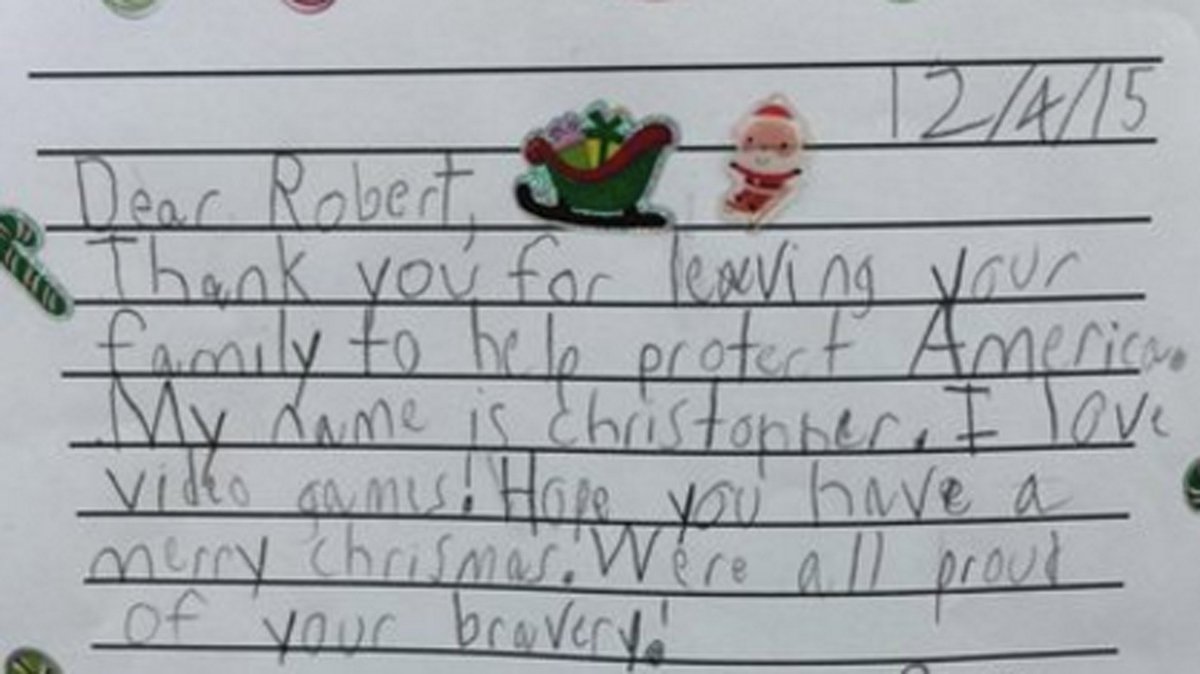 12/4/15
Dear Robert,
Thank you for leaving your
family to help protect America.
My name is christopher. I love
video games! Hope you have a
merry chrismas. We're all proud
of your bravery!